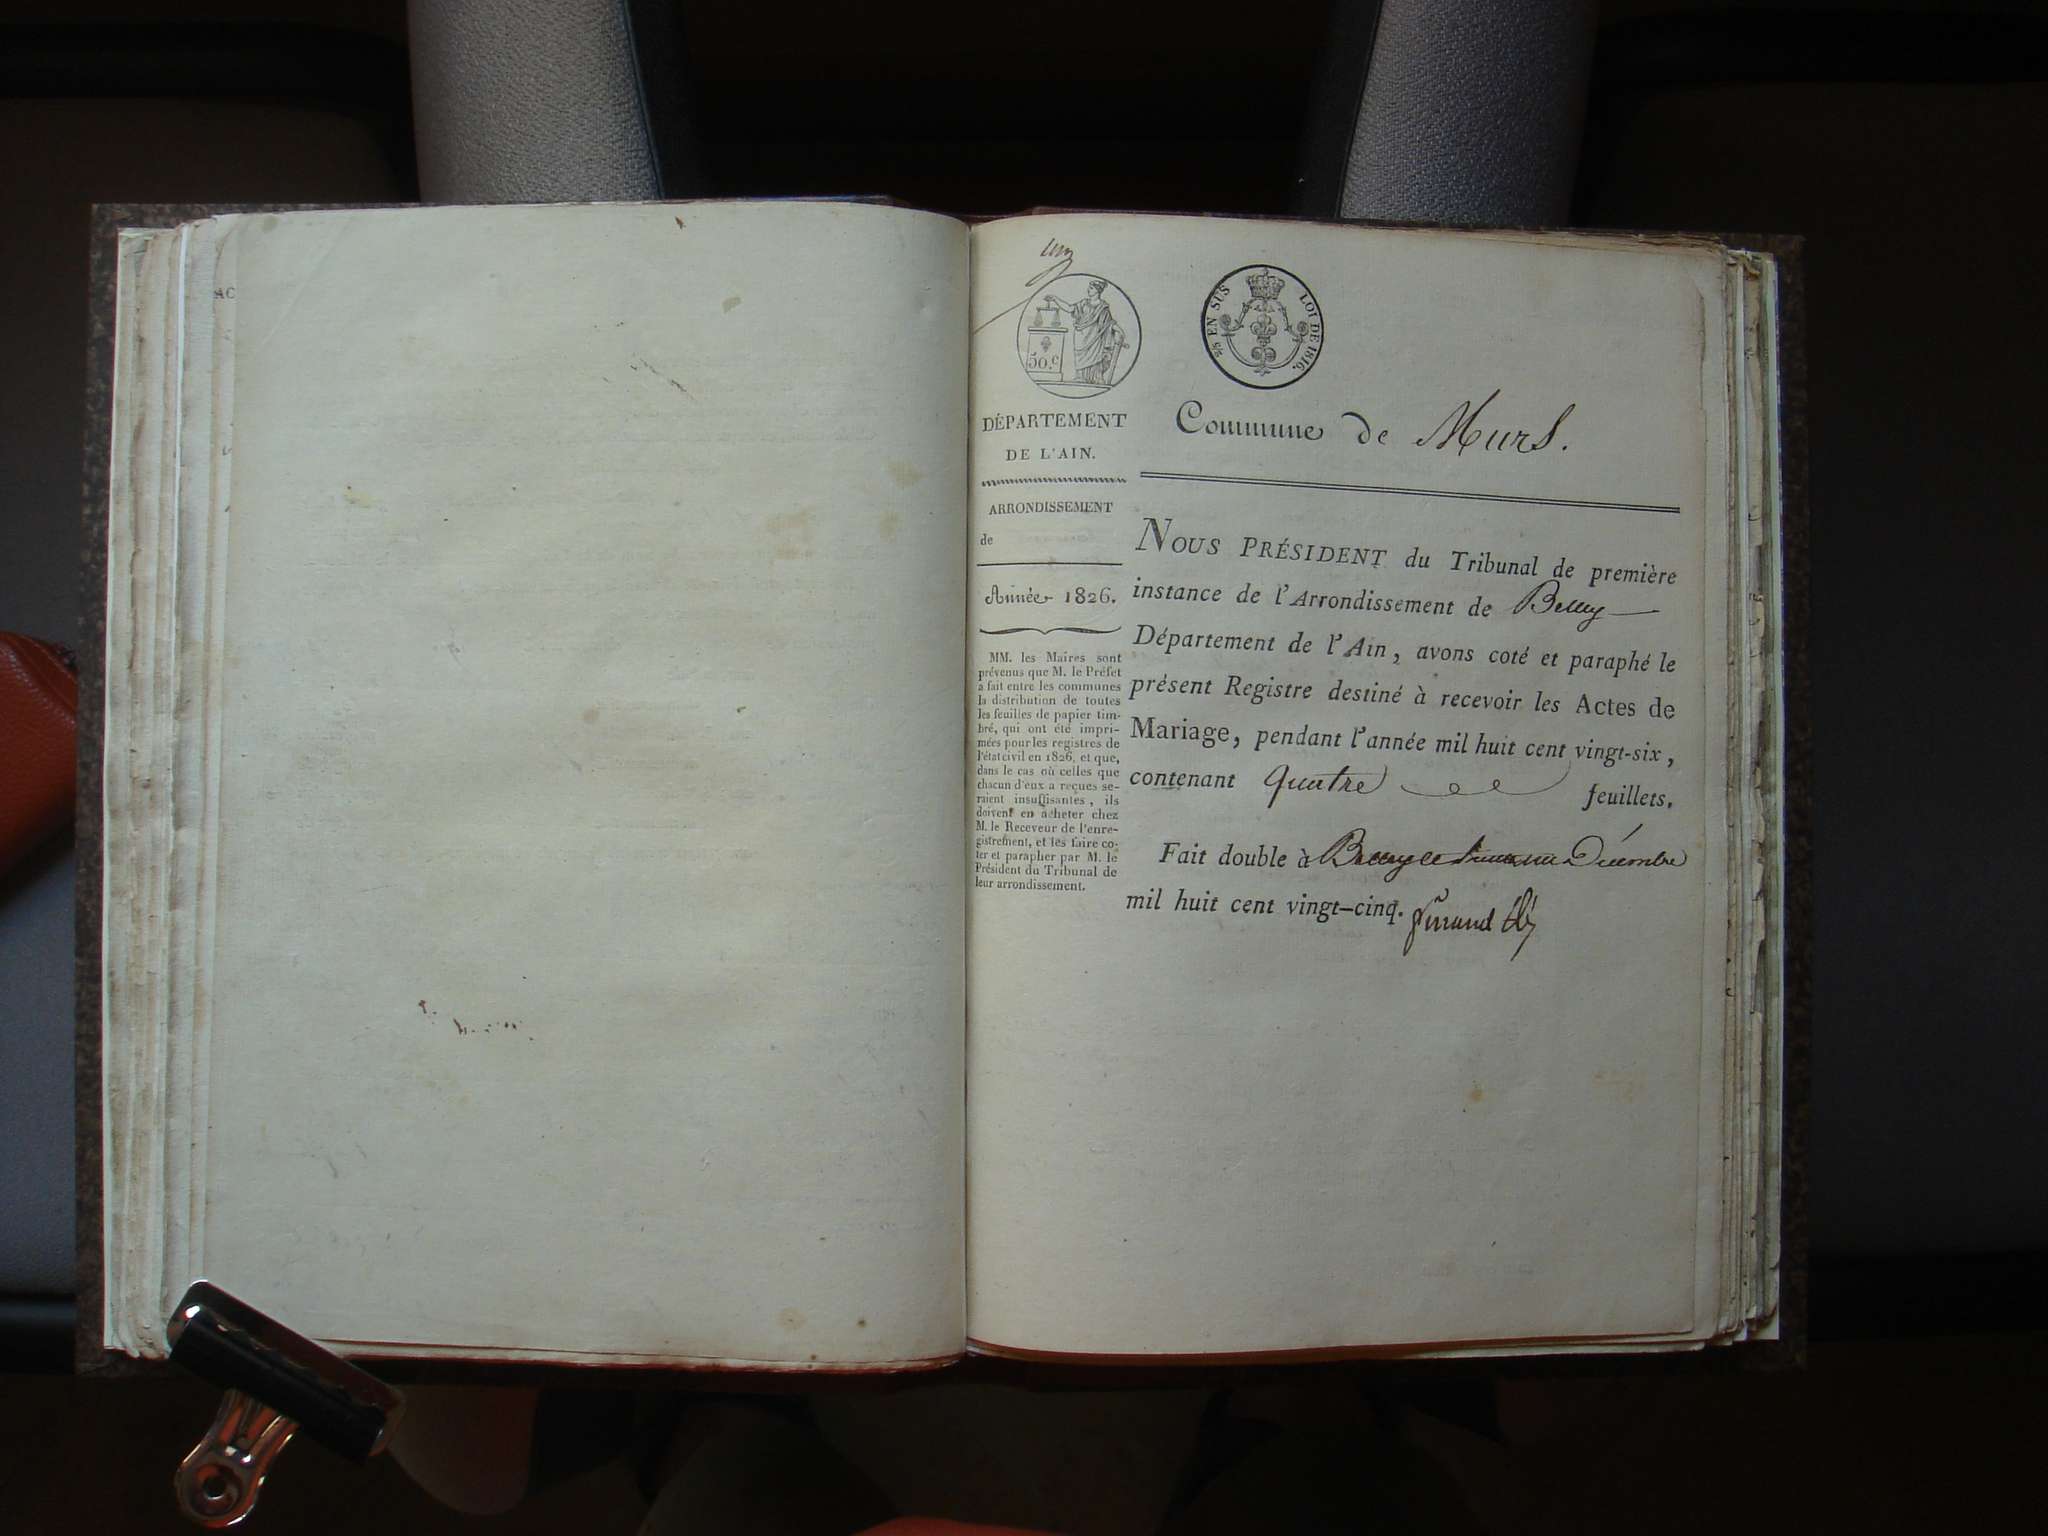 AC
un
50.c
2/5 EN SUS LOI DE 1816.
DÉPARTEMENT
DE L'AIN.
ARRONDISSEMENT
de
Année 1826.
MM. les Maires sont
prévenus que M. le Préfet
a fait entre les communes
la distribution de toutes
les feuilles de papier tim-
bré, qui ont été impri-
mées pour les registres de
l'état civil en 1826, et que,
dans le cas où celles que
chacun d'eux a reçues se-
raient insuffisantes, ils
doivent en acheter chez
M. le Receveur de l'enre-
gistrement, et les faire co-
ter et parapher par M. le
Président du Tribunal de
leur arrondissement.
Commune de Murs.
NOUS PRÉSIDENT du Tribunal de première
instance de l'Arrondissement de Belley
Département de l'Ain, avons coté et paraphé le
présent Registre destiné à recevoir les Actes de
Mariage, pendant l'année mil huit cent vingt-six,
contenant quatre feuillets.
Fait double à Belley le Décembre
mil huit cent vingt-cinq.